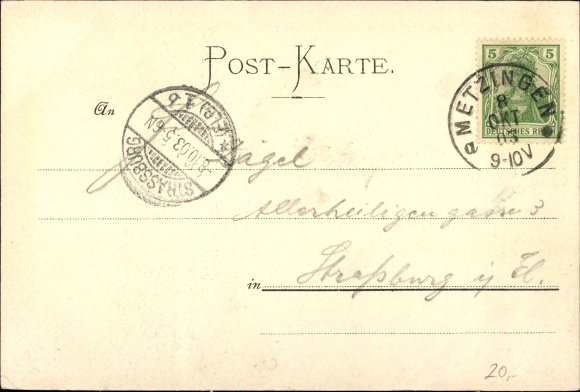 POST-KARTE.
5 5
DEUTSCHES REICH
METZINGEN
8
OKT
03
9-10V
An
STRASSBURG
(ELS) 1 b
8.10.03. 5-6N
Nägel
Allerheiligengasse 3
in Straßburg i/ El.
20,-